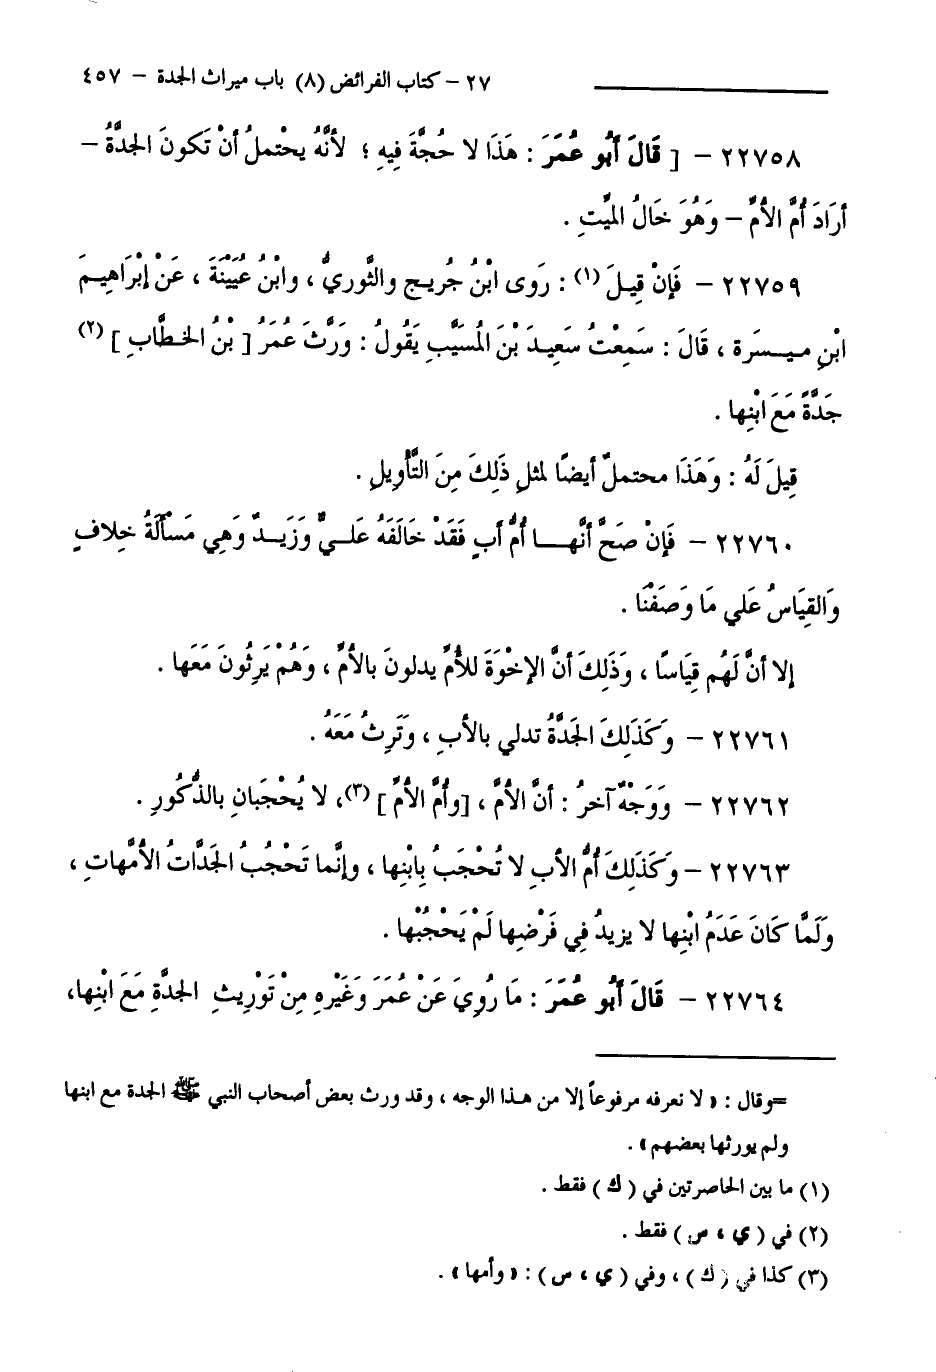 ٢٧ – كتاب الفرائض (٨) باب ميراث الجدة – ٤٥٧
٢٢٧٥٨ – [ قَالَ أَبُو عُمَرَ : هَذَا لا حُجَّةَ فِيهِ ؛ لأَنَّهُ يحْتملُ أَنْ تَكونَ الجدَّةُ –
أرَادَ أُمَّ الأُمِّ – وَهُوَ خَالُ الميِّتِ .
٢٢٧٥٩ – فَإِنْ قِيلَ (١) : رَوى ابْنُ جُريج والثَّوريُّ ، وابْنُ عُيَيْنَةَ ، عَنْ إبْرَاهِيمَ
ابْنِ ميسَرة ، قَالَ : سَمِعْتُ سَعِيدَ بْنَ المُسَيَّبِ يَقُولُ : وَرَّثَ عُمَرُ [ بْنُ الخطَّابِ ] (٢)
جَدَّةً مَعَ ابْنِها .
قِيلَ لَهُ : وَهَذَا محتملٌ أيضًا لمثلِ ذَلِكَ مِنَ التَّأويلِ .
٢٢٧٦٠ – فَإِنْ صَحَّ أَنَّها أُمُّ أبٍ فَقَدْ خَالَفَهُ عَلَيٌّ وَزَيدٌ وَهِي مَسأَلَةُ خِلافٍ
وَالقِيَاسُ عَلَي مَا وَصَفْنَا .
إلا أَنَّ لَهُم قِيَاسًا ، وَذَلِكَ أَنَّ الإخْوَةَ للأُمِّ يدلونَ بالأُمِّ ، وَهُمْ يَرِثُونَ مَعَها .
٢٢٧٦١ – وَكَذَلِكَ الجَدَّةُ تدلي بالأبِ ، وَتَرِثُ مَعَهُ .
٢٢٧٦٢ – وَوَجْهٌ آخرُ : أنَّ الأُمَّ ، [وأُمَّ الأُمِّ ] (٣)، لا يُحْجَبَانِ بالذُّكُورِ .
٢٢٧٦٣ – وَكَذَلِكَ أُمُّ الأبِ لا تُحْجَبُ بِابْنِها ، وإنَّما تَحْجُبُ الجَدَّاتُ الأُمَّهاتِ ،
وَلَمَّا كَانَ عَدَمُ ابْنِها لا يزيدُ فِي فَرْضِها لَمْ يَحْجُبْها .
٢٢٧٦٤ – قَالَ أَبُو عُمَرَ : مَا رُوِيَ عَنْ عُمَرَ وَغَيْرِهِ مِنْ تَوْرِيثِ الجدَّةِ مَعَ ابْنِها،
=وقال : « لا نعرفه مرفوعاً إلا من هذا الوجه ، وقد ورث بعض أصحاب النبي ﷺ الجدة مع ابنها
ولم يورثها بعضهم » .
(١) ما بين الحاصرتين في ( ك ) فقط .
(٢) في ( ي ، س ) فقط .
(٣) كذا في ( ك ) ، وفي ( ي ، س ) : « وأمها » .